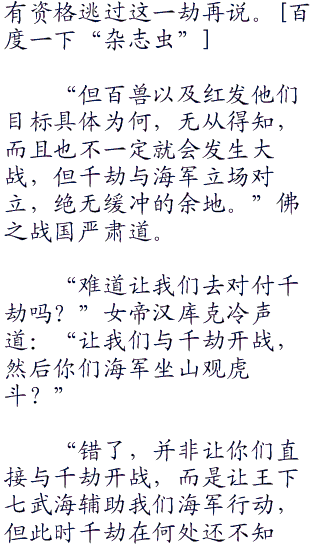 有资格逃过这一劫再说。[百
度一下“杂志虫”]
“但百兽以及红发他们
目标具体为何，无从得知，
而且也不一定就会发生大
战，但千劫与海军立场对
立，绝无缓冲的余地。”佛
之战国严肃道。
“难道让我们去对付千
劫吗？”女帝汉库克冷声
道：“让我们与千劫开战，
然后你们海军坐山观虎
斗？”
“错了，并非让你们直
接与千劫开战，而是让王下
七武海辅助我们海军行动，
但此时千劫在何处还不知